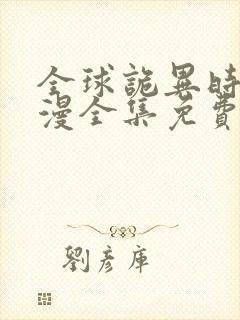 全球詭異時
漫全集免費
劉彥庫